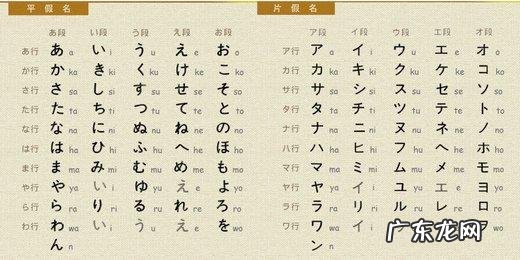 平假名
あ段 い段 う段 え段 お段
あ行 あ a い i う u え e お o
か行 か ka き ki く ku け ke こ ko
さ行 さ sa し si す su せ se そ so
た行 た ta ち ti つ tu て te と to
な行 な na に ni ぬ nu ね ne の no
は行 は ha ひ hi ふ hu へ he ほ ho
ま行 ま ma み mi む mu め me も mo
や行 や ya い i ゆ yu え e よ yo
ら行 ら ra り ri る ru れ re ろ ro
わ行 わ wa い i う u え e を wo
ん n
片假名
ア段 イ段 ウ段 エ段 オ段
ア行 ア a イ i ウ u エ e オ o
カ行 カ ka キ ki ク ku ケ ke コ ko
サ行 サ sa シ si ス su セ se ソ so
タ行 タ ta チ ti ツ tu テ te ト to
ナ行 ナ na ニ ni ヌ nu ネ ne ノ no
ハ行 ハ ha ヒ hi フ hu ヘ he ホ ho
マ行 マ ma ミ mi ム mu メ me モ mo
ヤ行 ヤ ya イ i ユ yu エ e ヨ yo
ラ行 ラ ra リ ri ル ru レ re ロ ro
ワ行 ワ wa イ i
ン n
广东龙网